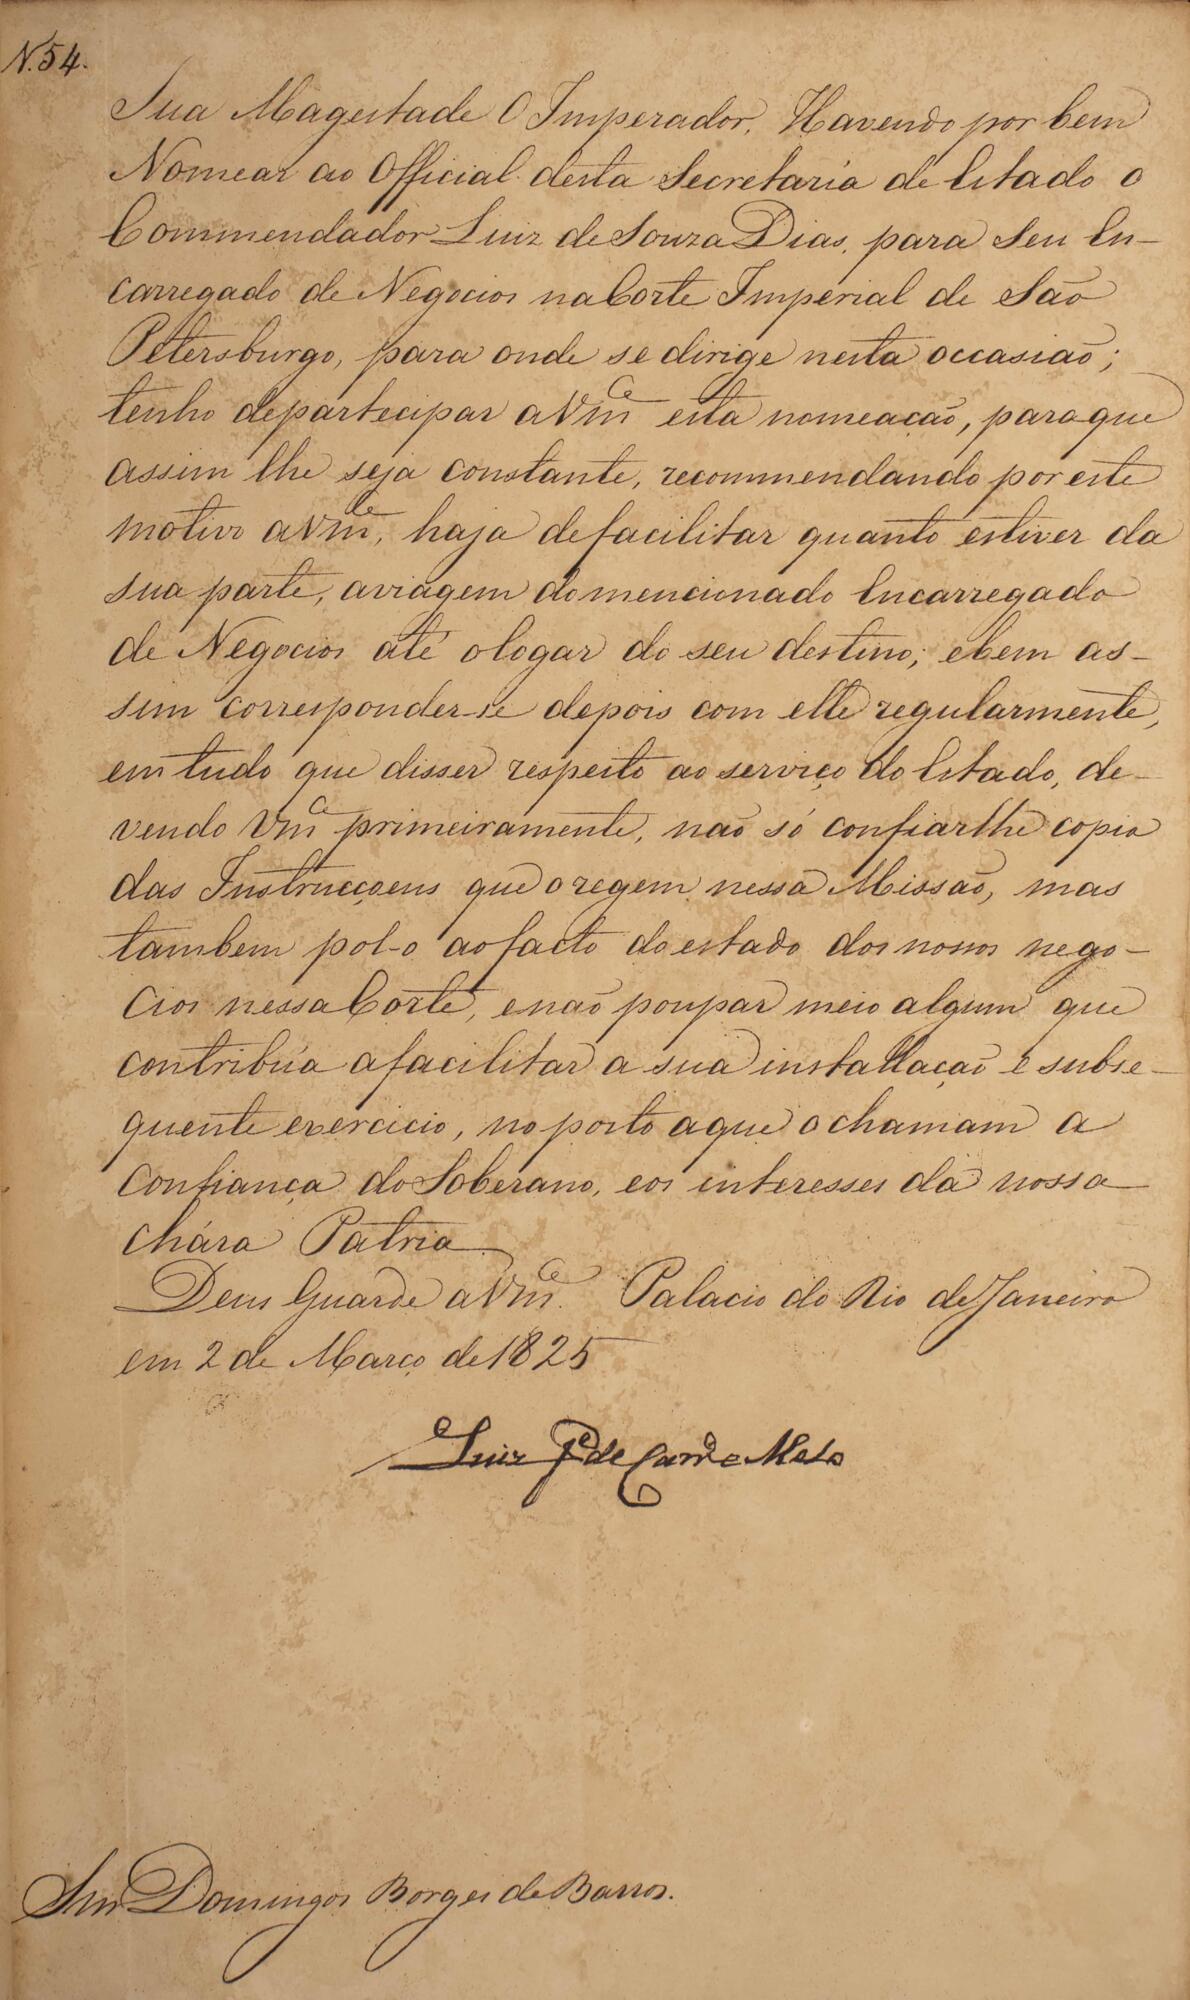 N. 54.
Sua Magestade O Imperador, Havendo por bem
Nomear ao Official desta Secretaria de Estado o
Commendador Luiz de Souza Dias, para Seu En-
carregado de Negocios na Corte Imperial de São
Petersburgo, para onde se dirige nesta occasião;
tenho departecipar a Vm.ce esta nomeação, para que
assim lhe seja constante, recommendando por este
motivo a Vm.ce, haja de facilitar quanto estiver da
sua parte, a viagem do mencionado Encarregado
de Negocios até o logar do seu destino; e bem as-
sim corresponder-se depois com elle regularmente,
em tudo que disser respeito ao serviço do Estado, de-
vendo Vm.ce primeiramente, não só confiarlhe copia
das Instrucçoens que o regem nessa Missão, mas
tambem pol-o ao facto do estado dos nossos nego-
cios nessa Corte, e não poupar meio algum que
contribúa a facilitar a sua installação e subse-
quente exercicio, no posto a que o chamam a
confiança do Soberano, e os interesses da nossa
chára Patria.
Deus Guarde a Vm.ce. Palacio do Rio de Janeiro
em 2 de Março de 1825
Luiz Je. de Carv.o e Mello
Snr. Domingos Borges de Barros.